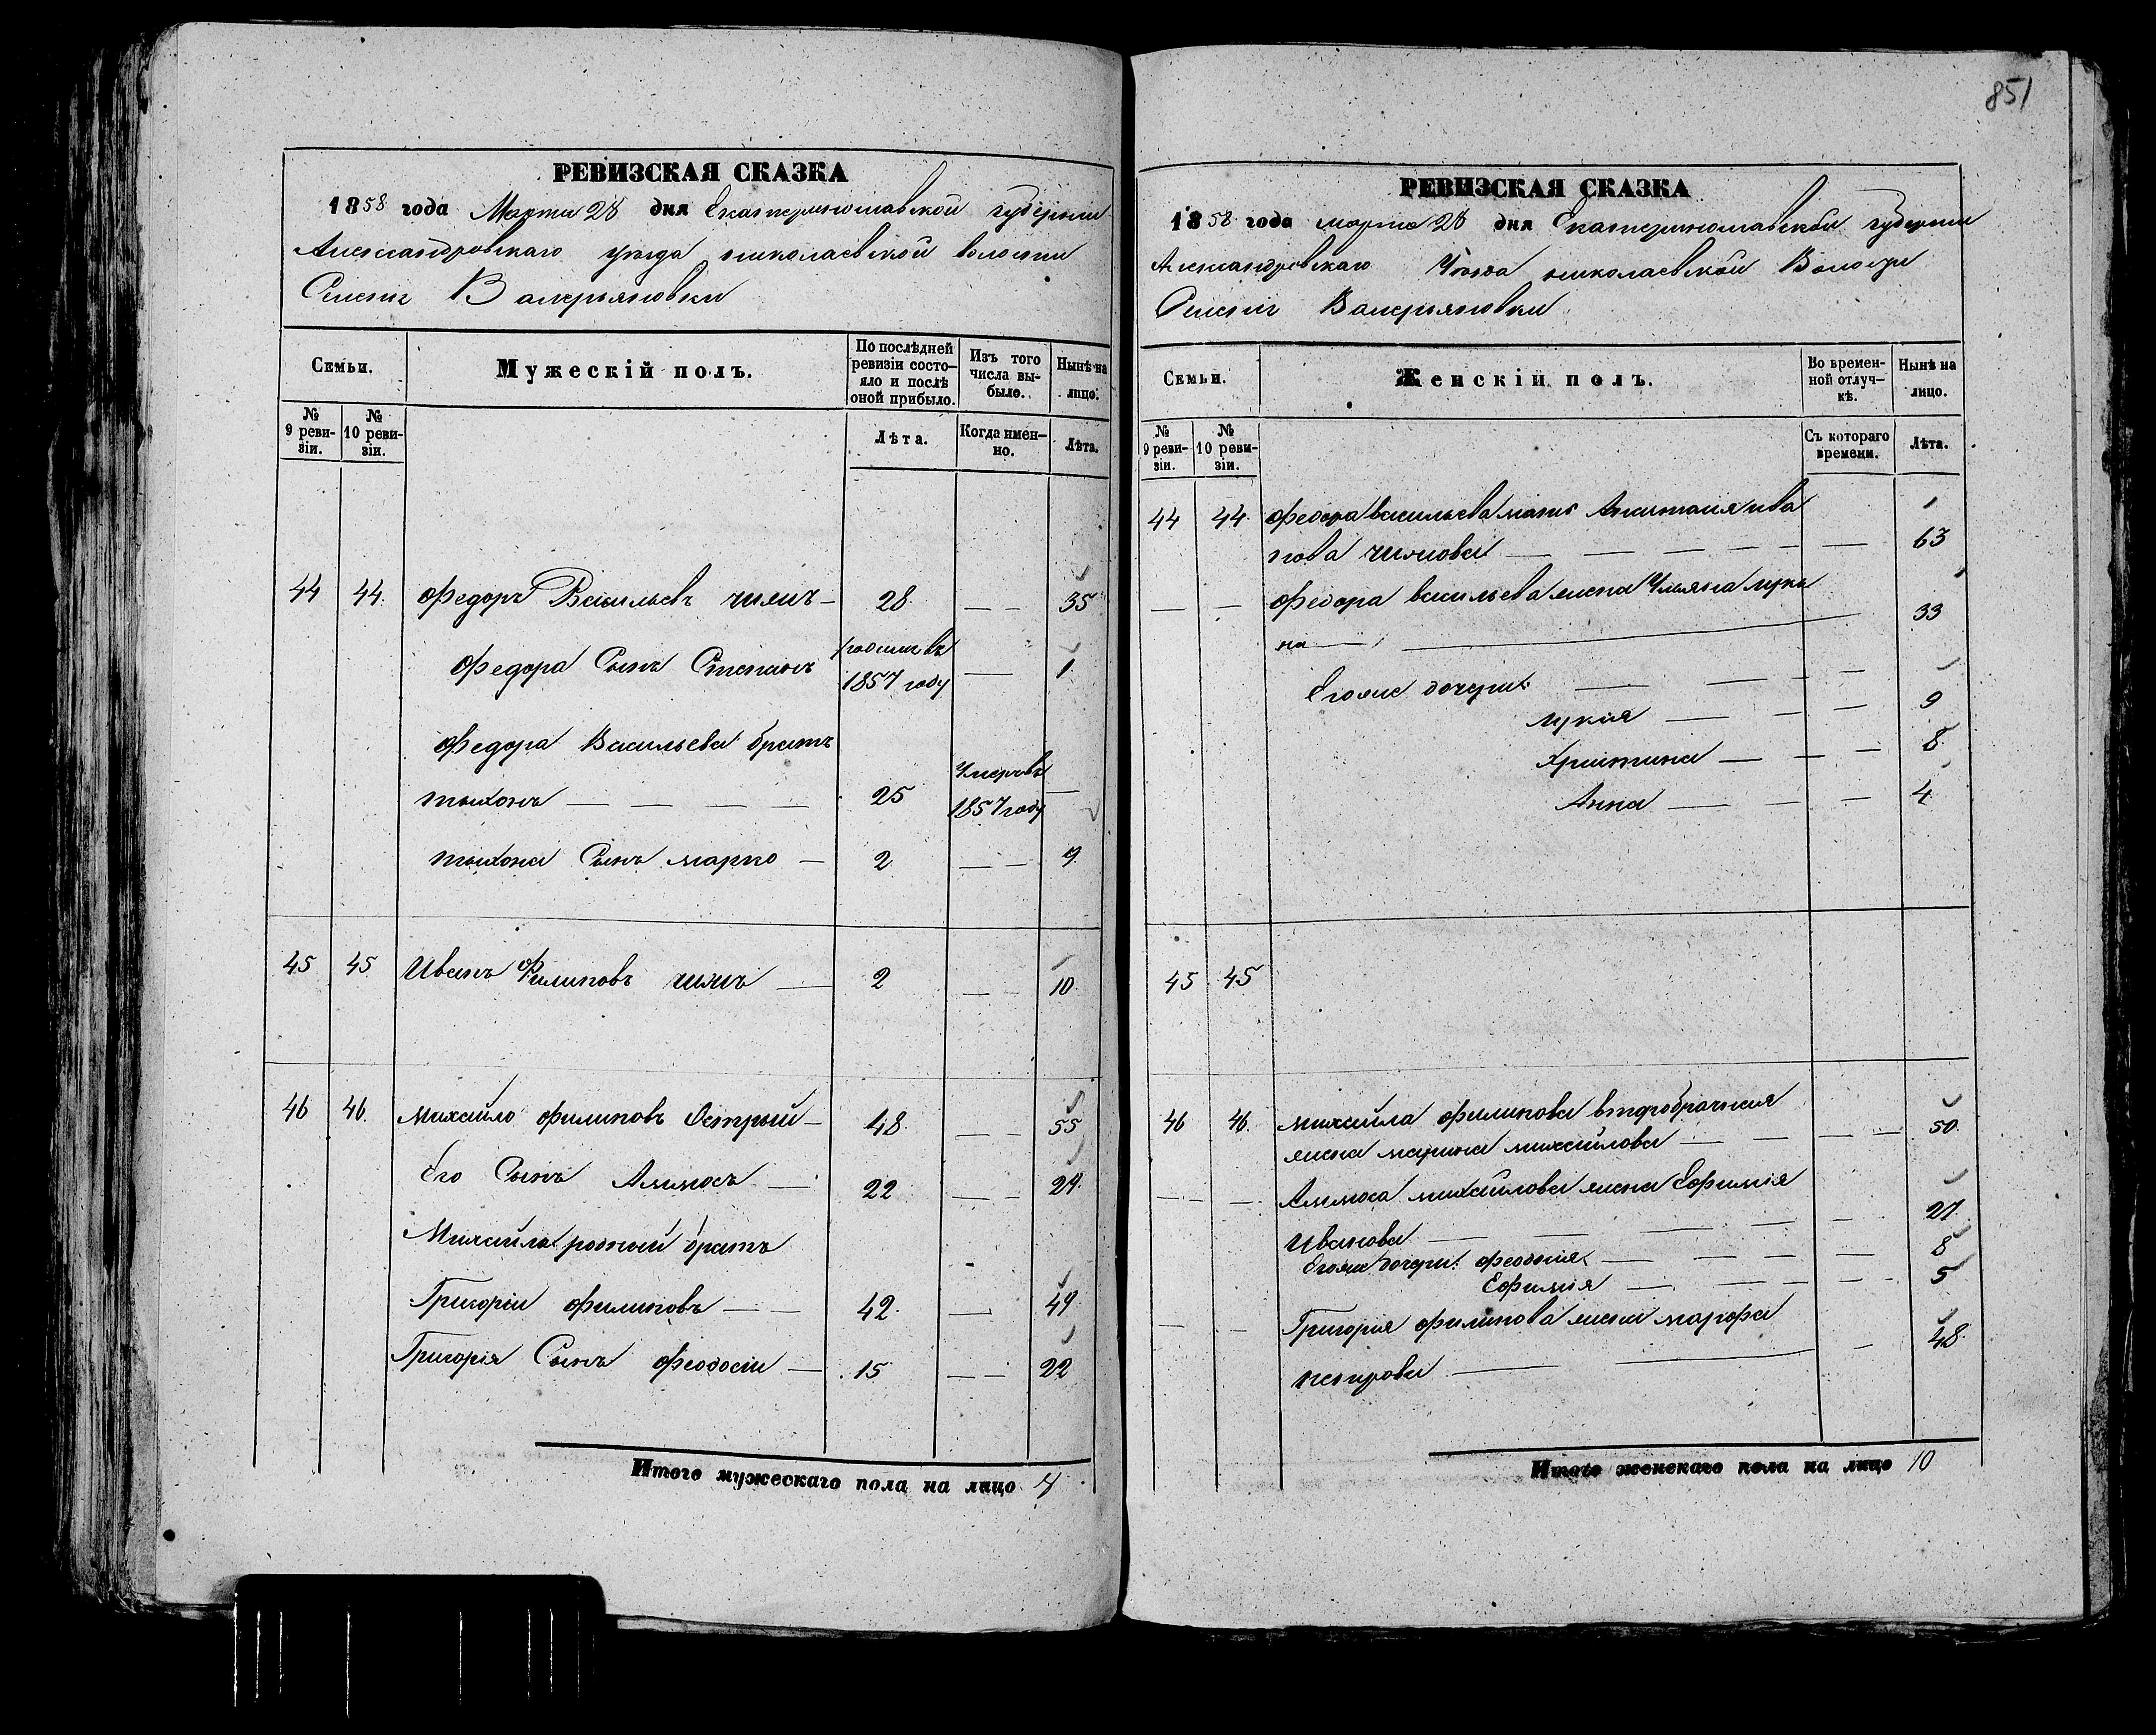 851
РЕВИЗСКАЯ СКАЗКА
1858 года Марта 28 дня Екатеринославской губернии
Александровскаго уѣзда николаевской волости
Валерьяновки
Семьи.
Мужескій полъ.
По послѣдней ревизіи состояло и послѣ оной прибыло.
Изъ того числа выбыло.
Нынѣ на лицо.
№ 9 ревизіи.
№ 10 ревизіи.
Лѣта.
Когда именно.
Лѣта.
44 44. Федоръ Васильевъ 28. — — 35
Федора Сынъ Степанъ родился въ 1857 году — 1
Федора Васильева братъ
тихонъ — — — — 25 Умеръ въ 1857 году —
тихона Сынъ марко — 2 — — 9
45 45 Иванъ Филиповъ — 2 — — 10
46 46. михайло филиповъ Острый — 48. — — 55
Его Сынъ Аммосъ — 22 — — 29.
Михайла родный братъ
Григорій филиповъ — — 42. — 49
Григорія Сынъ феодосій — 15 — — 22
Итого мужескаго пола на лицо 7
РЕВИЗСКАЯ СКАЗКА
1858 года марта 28 дня Екатеринославской губернии
Александровскаго Уѣзда николаевской Волости
Валерьяновки
Семьи.
Женскій полъ.
Во временной отлучкѣ.
Нынѣ на лицо.
№ 9 ревизіи.
№ 10 ревизіи.
Съ котораго времени.
Лѣта.
44 44. федора васильева мать Анастасия ива
нова — — — — — — 63
— — Федора васильева жена Ульяна
на — 33
Егоже дочери: — — —
лукія — — — 9
Христина — — — 8.
Анна — — — 4
45 45
46 46. михайла филипова второбрачная
жена марина михайлова — — — — 50.
— — Аммоса михайлова жена Ефимія
Иванова — — — — — 27
Егоже дочери: феодосія — — — 8
Ефимія — — — — 5
— — Григорія филипова жена марфа
петрова — — — 48.
Итого женскаго пола на лицо 10